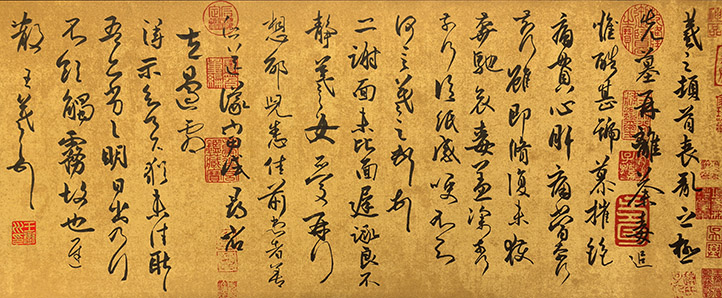 羲之頓首喪亂之極
先墓再離荼毒追
惟酷甚號慕摧絕
痛貫心肝痛當奈何
奈何雖即脩復未獲
奔馳哀毒益深奈何
奈何臨紙感哽不知
何言羲之頓首頓首
二謝面未比面遲詠良不
靜羲之女愛再拜
想邰兒悉佳前患者善
所送議當試尋省
左邊劇
得示知足下猶未佳耿
吾亦劣劣明日出乃行
不欲觸霧故也遲
散王羲之頓首